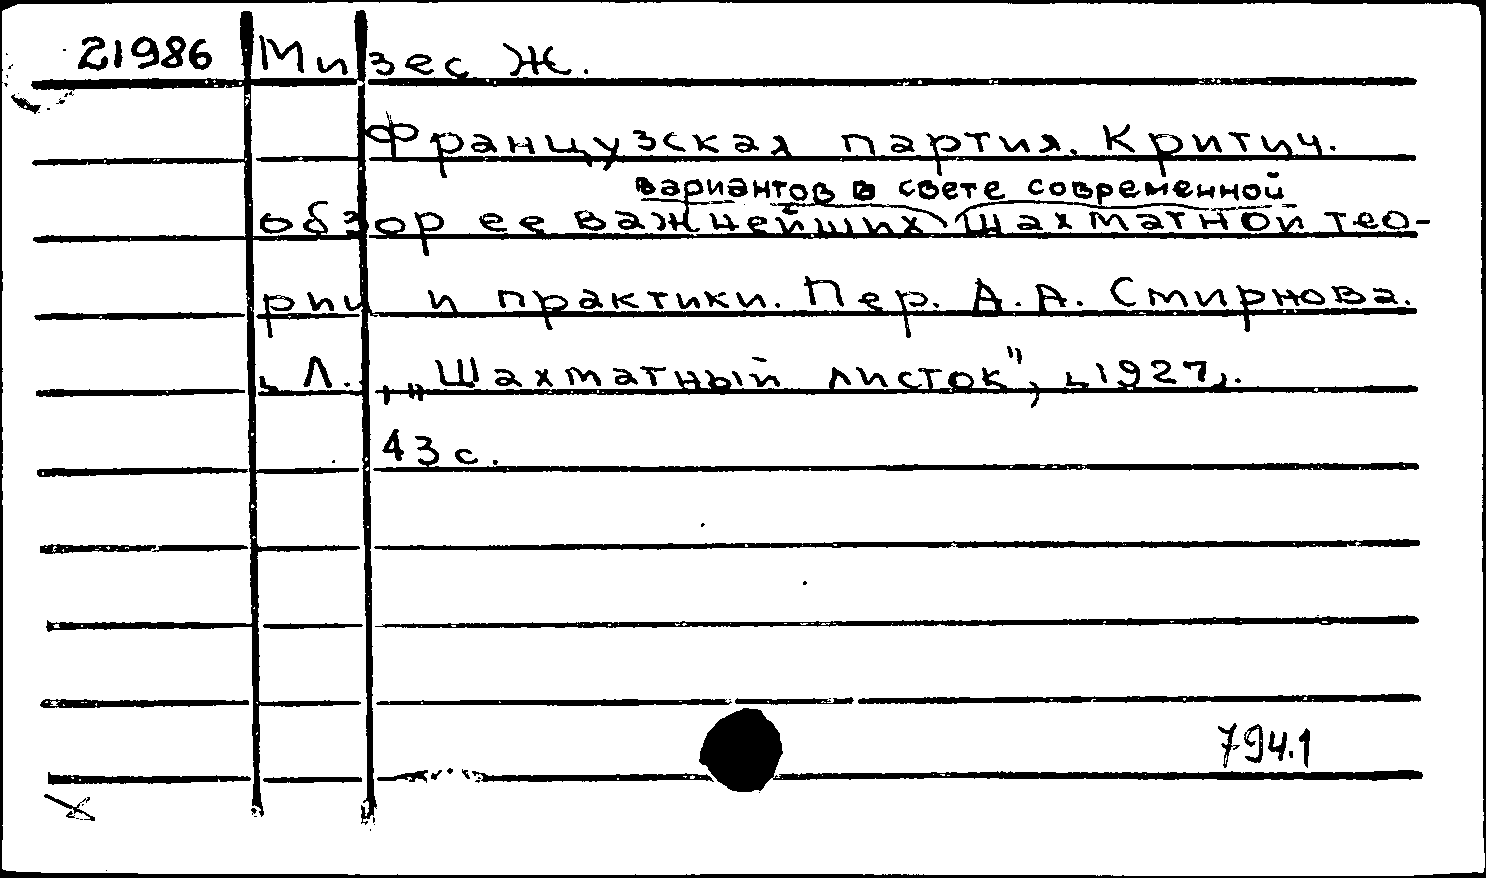 21986 Мизес Ж.
Французская партия. Критич.
вариантов в свете современной
обзор ее важнейших шахматной тео-
рии и практики. Пер. А.А. Смирнова.
Л., „Шахматный листок", 1927.
43 с.
794.1